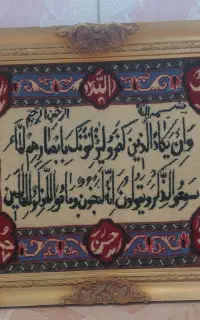 الله
بسم الله الرحمن الرحیم
وان یکاد الذین کفروا لیزلقونک بابصارهم لما
سمعوا الذکر و یقولون انه لمجنون وما هو الا ذکر للعالمین
حسن